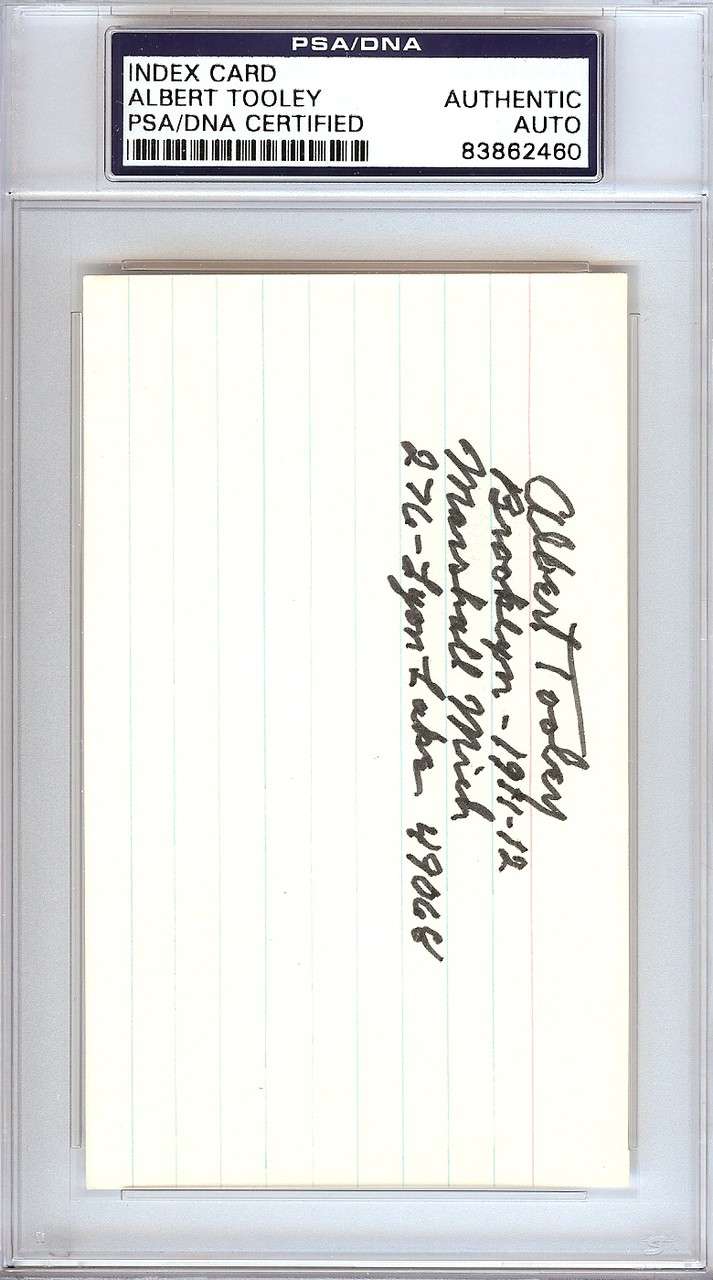 PSA/DNA
INDEX CARD
ALBERT TOOLEY
PSA/DNA CERTIFIED
AUTHENTIC
AUTO
83862460
Albert Tooley
Brooklyn - 1911-12
Marshall Mich
276 - Lyon Lake 49068